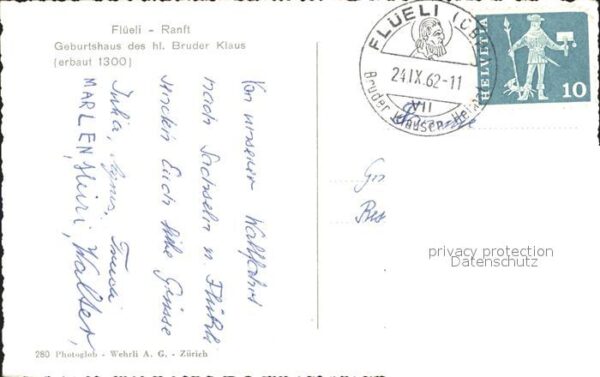 Flüeli - Ranft
Geburtshaus des hl. Bruder Klaus
(erbaut 1300)
Von unserer Wallfahrt
nach Sachseln u Flühli
senden Euch liebe Grüsse
Julia, Agnes, Trudi
MARLEN, Heiri, Walter,
280 Photoglob - Wehrli A. G. - Zürich
FLÜELI (OBW)
24.IX.62-11
VII
Bruder Klausen-Heimat
HELVETIA
10
privacy protection
Datenschutz